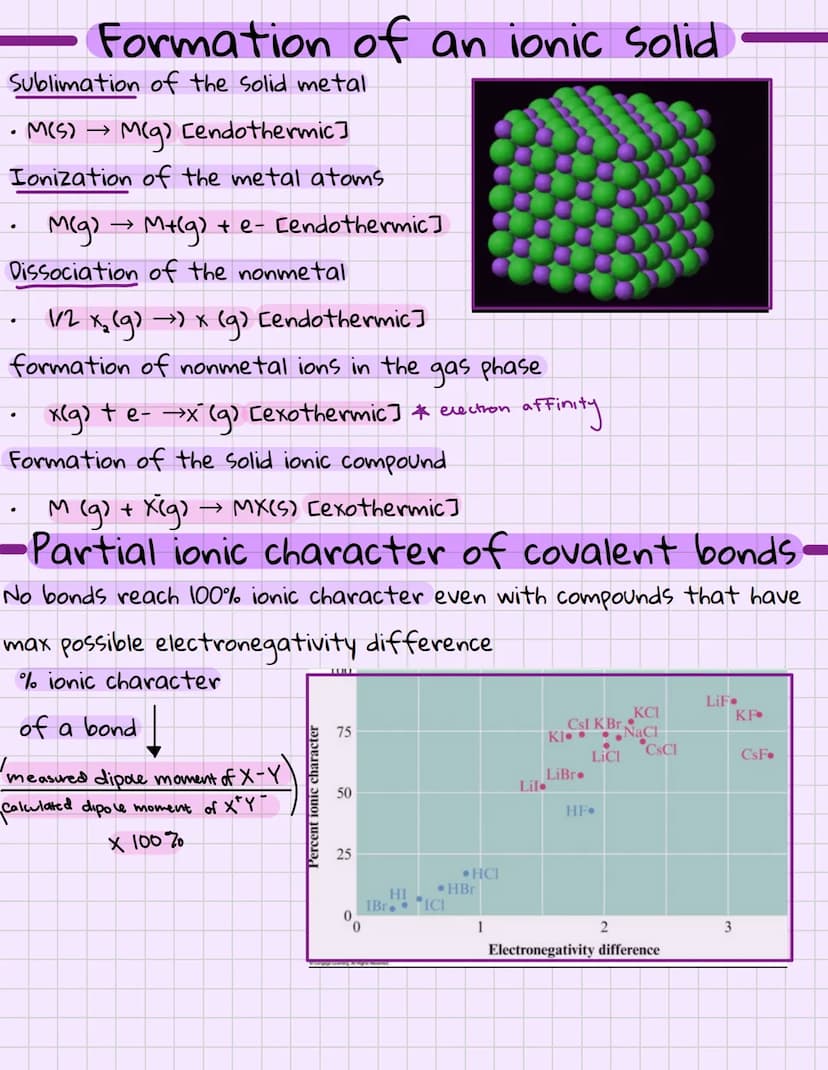 Formation of an ionic solid
Sublimation of the solid metal
• M(s) → M(g) [endothermic]
Ionization of the metal atoms
• M(g) → M+(g) + e- [endothermic]
Dissociation of the nonmetal
• 1/2 x₂(g) →) x (g) [endothermic]
formation of nonmetal ions in the gas phase
• x(g) + e- →x⁻(g) [exothermic] * electron affinity
Formation of the solid ionic compound
• M (g) + X⁻(g) → MX(s) [exothermic]
Partial ionic character of covalent bonds
No bonds reach 100% ionic character even with compounds that have
max possible electronegativity difference
% ionic character
of a bond ↓
(measured dipole moment of X-Y
calculated dipole moment of X⁺Y⁻)
X 100%
100
75
50
25
0
Percent ionic character
LiF
KF
KCl
CsI KBr
KI
NaCl
CsCl
LiCl
CsF
LiBr
LiI
HF
HCl
HBr
HI
IBr
ICl
0 1 2 3
Electronegativity difference
© Cengage Learning. All Rights Reserved.